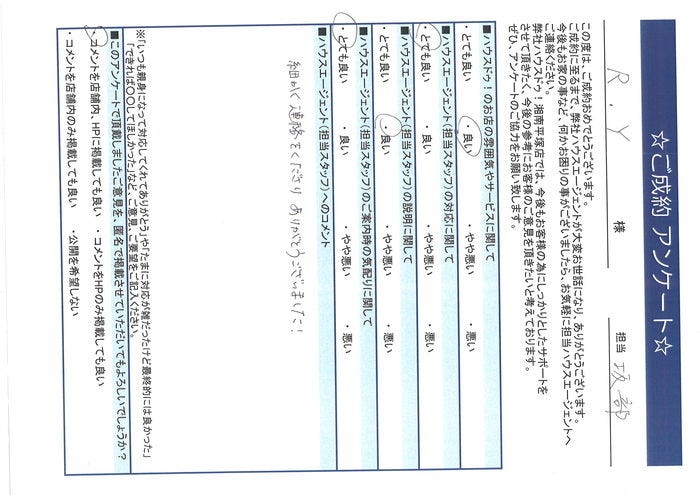 ☆ご成約 アンケート☆
R.Y 様 担当 阪部
この度は、ご成約おめでとうございます。
ご成約に至るまで、弊社ハウスエージェントが大変お世話になり、ありがとうございます。
今後もお家の事など、何かお困りの事がございましたら、お気軽に担当ハウスエージェントへ
ご連絡ください。
弊社ハウスドゥ!湘南平塚店では、今後もお客様の為にしっかりとしたサポートを
させて頂きたく、今後の参考にお客様のご意見を頂きたいと考えております。
ぜひ、アンケートのご協力をお願い致します。
■ハウスドゥ!のお店の雰囲気やサービスに関して
・とても良い ・良い ・やや悪い ・悪い
■ハウスエージェント(担当スタッフ)の対応に関して
・とても良い ・良い ・やや悪い ・悪い
■ハウスエージェント(担当スタッフ)の説明に関して
・とても良い ・良い ・やや悪い ・悪い
■ハウスエージェント(担当スタッフ)のご案内時の気配りに関して
・とても良い ・良い ・やや悪い ・悪い
■ハウスエージェント(担当スタッフ)へのコメント
細かく連絡をくださり ありがとうございました!
※「いつも親身になって対応してくれてありがとう」や「たまに対応が雑だったけど最終的には良かった」
「できれば〇〇してほしかった」など、ご意見、ご要望をご記入ください。
■このアンケートで頂戴しましたご意見を、匿名で掲載させていただいてもよろしいでしょうか?
・コメントを店舗内、HPに掲載しても良い ・コメントをHPのみ掲載しても良い
・コメントを店舗内のみ掲載しても良い ・公開を希望しない